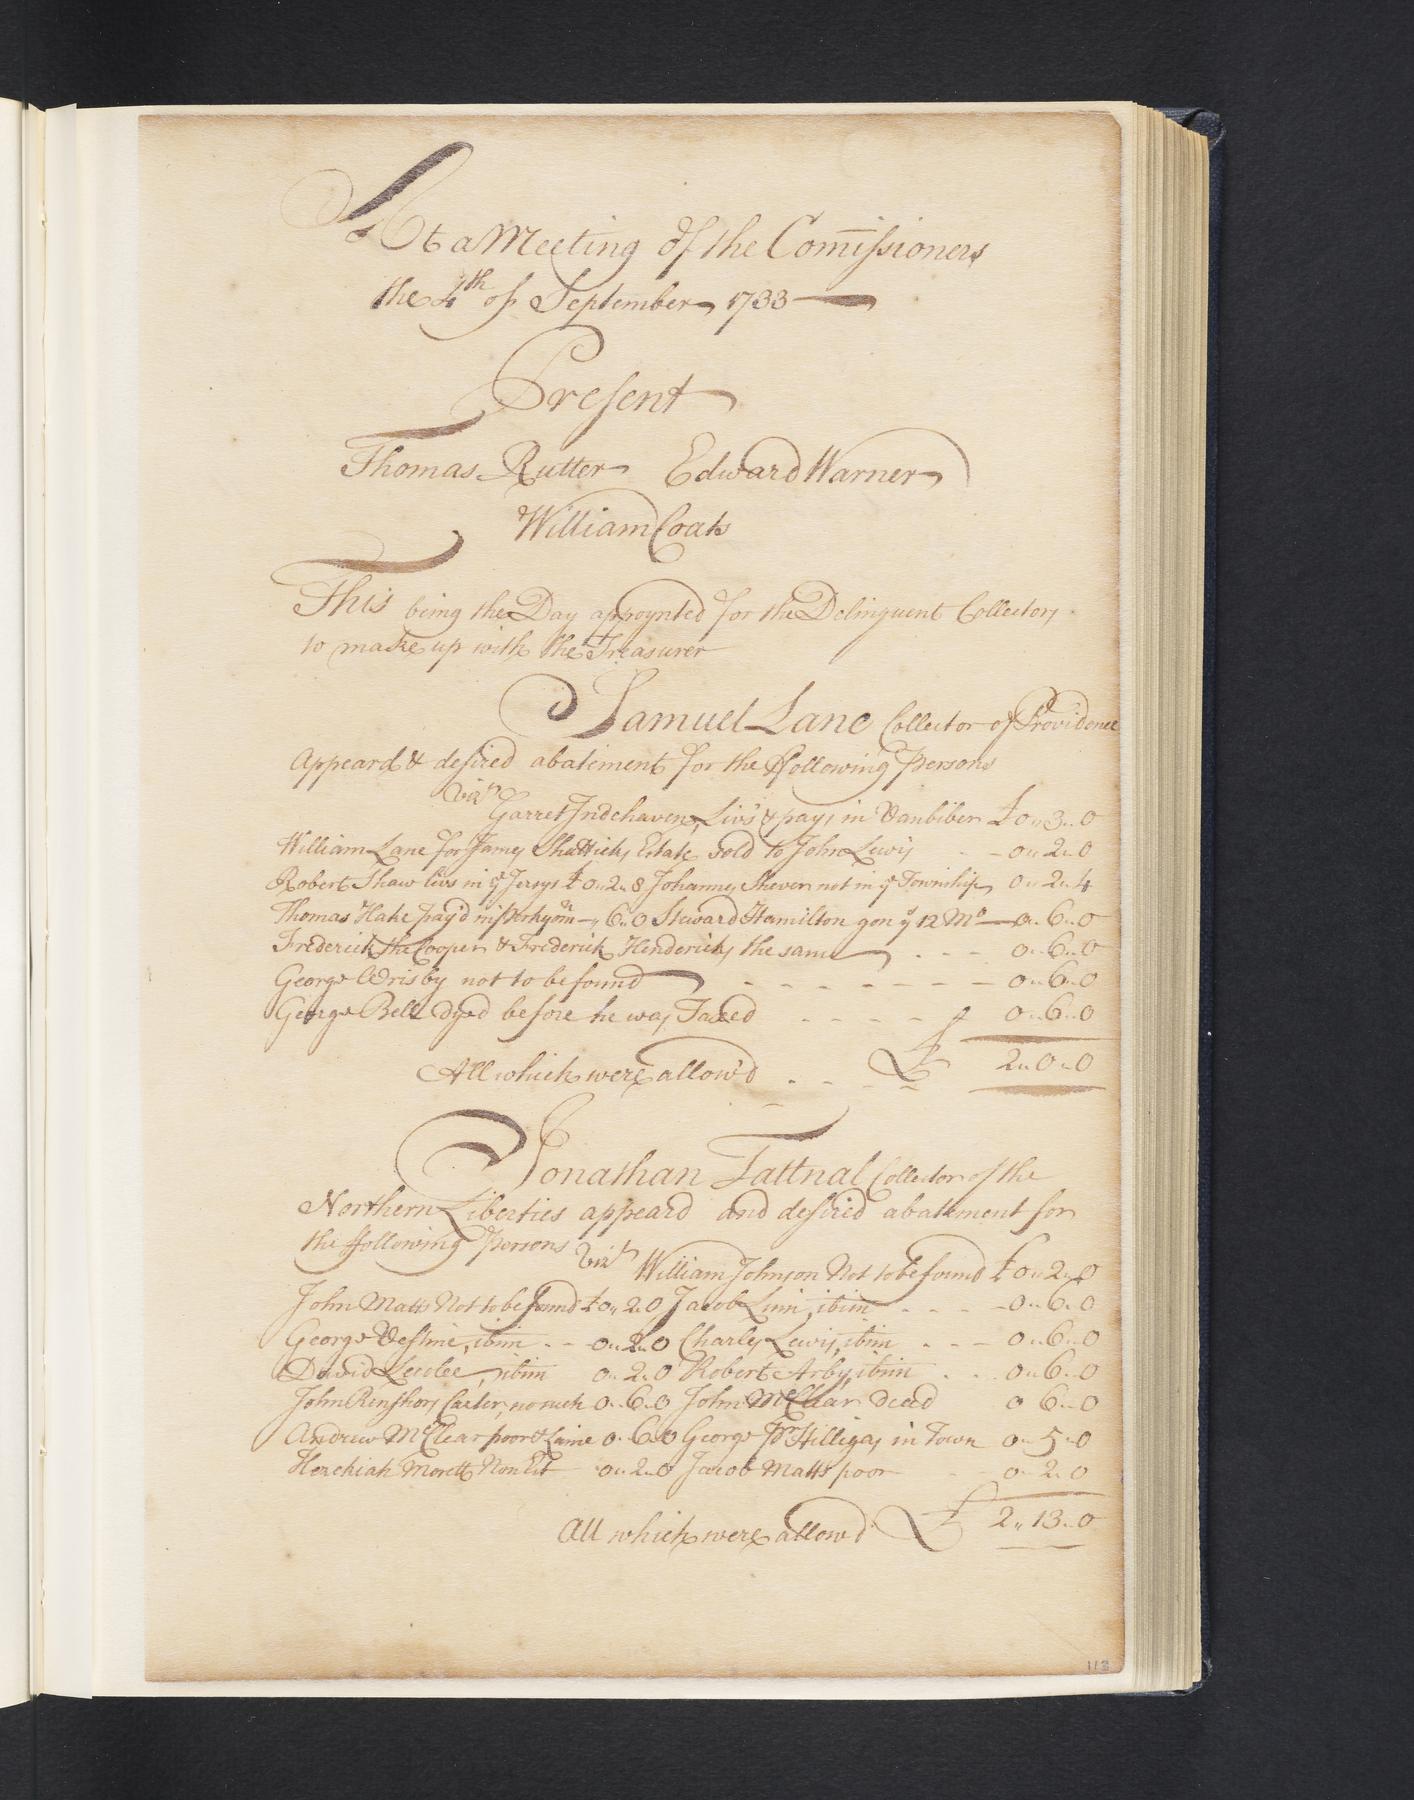 At a Meeting of the Com̄issioners
the 4th of September 1733
Present
Thomas Rutter Edward Warner
William Coats
This being the Day appoynted for the Delinquent Collectors
to make up with the Treasurer
Samuel Lane Collector of Providence
Appeard & desired abatement for the ffollowing Persons
vizt Garret Indehaven, Livs & pays in Vanbiber £ 0,,3,,0
William Lane for James Shatticks Estate sold to John Lewis 0,,2,,0
Robert Shaw livs in ye Jersys £ 0,,2,,8 Johannes Skeven not in ye Township 0,,2,,4
Thomas Hake pay'd in 6,,0 Steward Hamilton gon ye 12 Mo 0,,6,,0
Frederick the Cooper & Frederick Hendericks the same 0,,6,,0
George Wrisby not to be found 0,,6,,0
George Bell Dyed before he was Taxed 0,,6,,0
All which were allow'd £ 2,,0,,0
Jonathan Tattnal Collector of the
Northern Liberties appeard and desired abatement for
the ffollowing Persons vizt William Johnson Not to be found £ 0,,2,,0
John Matts Not to be found £ 0,,2,,0 Jacob Linn, ibim 0,,6,,0
George Vestine, ibim 0,,2,,0 Charles Lewis, ibim 0,,6,,0
David Leeslee, ibim 0,,2,,0 Robert Arby, ibim 0,,6,,0
John Renshors Carter, no such 0,,6,,0 John McClear Deed 0 6,,0
Andrew McClear poor & Lame 0,,6,,0 George Hilligas in Town 0,,5,,0
Hezekiah Morett Non Est 0,,2,,0 Jacob Matts poor 0,,2,,0
All which were allowd £ 2,,13,,0
113